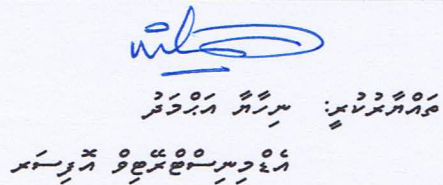 ތައްޔާރުކުރީ: ނިހާޔާ އަޙްމަދު
އެޑްމިނިސްޓްރޭޓިވް އޮފިސަރ